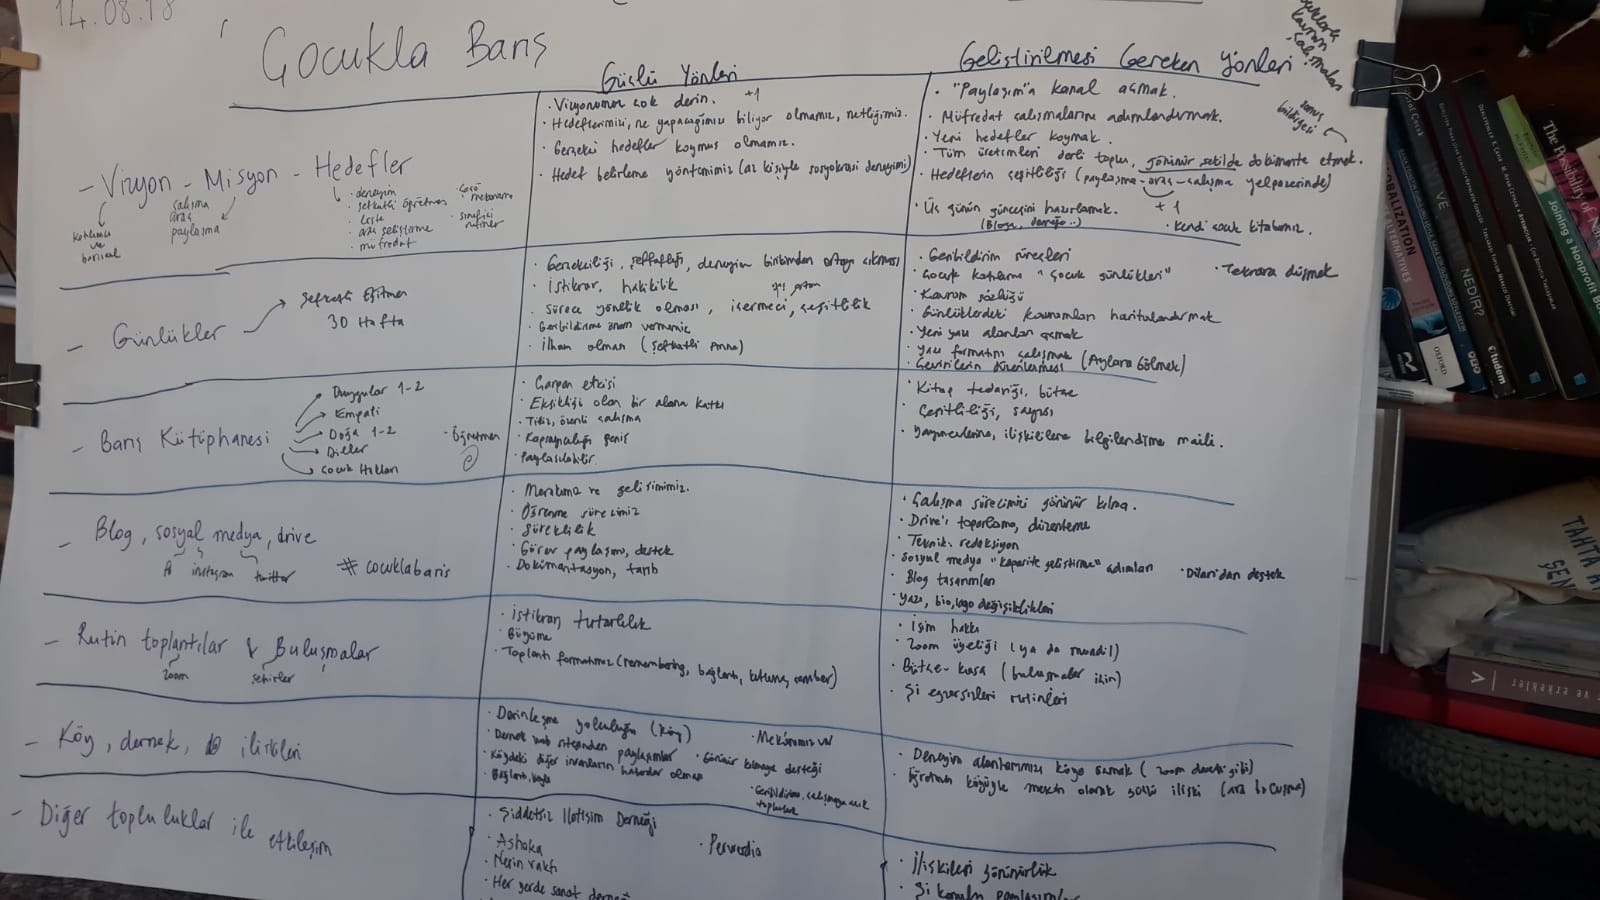 14.08.18
Çocukla Barış
Güçlü Yönleri
Geliştirilmesi Gereken Yönleri
- Vizyon - Misyon - Hedefler
çalışma
araç
paylaşma
· deneyim
· şefkatli öğretmen
· liste
· müfredat
· Vizyonumuz çok derin. +1
· Hedeflerimizi, ne yapacağımızı biliyor olmamız, netliğimiz.
· Gerçekçi hedefler koymuş olmamız.
· Hedef belirleme yöntemimiz (az kişiyle sosyokrasi deneyimi)
· "Paylaşım"a kanal açmak.
· Müfredat çalışmalarını adımlandırmak.
· Yeni hedefler koymak.
· Tüm üretimleri derli toplu, görünür şekilde dokümante etmek.
· Hedeflerin çeşitliliği (paylaşma - araç - çalışma yelpazesinde)
+1
· Üç günün güncesini hazırlamak.
(Bloga, derneğe..)
· Kendi çocuk kitabımız.
- Günlükler
Şefkatli Eğitmen
30 Hafta
· Gerçekçiliği, şeffaflığı, deneyim birikimden ortaya çıkması
· İstikrar, hakikilik
· Sürece yönelik olması, içermeci, çeşitlilik
· Geribildirime önem vermemiz
· İlham olması (Şefkatli Anne)
· Geribildirim süreçleri
· Çocuk katılımı "çocuk günlükleri"
· Tekrara düşmek
· Kavram sözlüğü
· Günlüklerdeki kavramları haritalandırmak
· Yeni yazı alanları açmak
· Yazı formatını çalışmak (Aylara bölmek)
· Çevirilerin düzenlenmesi
- Barış Kütüphanesi
Duygular 1-2
Empati
Doğa 1-2
Diller
Çocuk Hakları
· Öğretmen
· Çarpan etkisi
· Eksikliği olan bir alana katkı
· Titiz, özenli çalışma
· Kapsayıcılığı geniş
· Paylaşılabilir.
· Kitap tedariği, bütçe
· Çeşitliliği, sayısı
· Yayınevlerine, ilişkililere bilgilendirme maili.
- Blog, sosyal medya, drive
instagram
twitter
# cocuklabaris
· Merakımız ve gelişimimiz.
· Öğrenme sürecimiz
· Süreklilik
· Görev paylaşımı, destek
· Dokümantasyon, tarih
· Çalışma sürecimizi görünür kılma.
· Drive'ı toparlama, düzenleme
· Teknik redaksiyon
· Sosyal medya "kapasite geliştirme" adımları
· Dilan'dan destek
· Blog tasarımları
· Yazı, bio, logo değişiklikleri
- Rutin toplantılar & Buluşmalar
zoom
şehirler
· İstikrar, tutarlılık
· Büyüme
· Toplantı formatımız (remembering, bağlantı, kutlama, çember)
· İsim hakkı
· Zoom üyeliği (ya da muadil)
· Bütçe - kasa (buluşmalar için)
· Şi egzersizleri rutinleri
- Köy, dernek, ilişkileri
· Derinleşme yolculuğu (Köy)
· Mekânımız var
· Dernek web sitesinden paylaşımlar
· Görünür kılmaya desteği
· Köydeki diğer insanların haberdar olması
· Deneyim alanlarımızı köye sunmak (zoom daveti gibi)
· Öğretmen köyüyle mekân olarak güçlü ilişki
- Diğer topluluklar ile etkileşim
· Şiddetsiz İletişim Derneği
· Ashoka
· Nesin vakfı
· Her yerde sanat derneği
· İlişkileri görünürlük
· Şi konulu paylaşımlar
GLOBALIZATION
VE
NEDİR?
OXFORD
tudem
The Possibility of
Joining a Nonprofit B
TAHTA
ve erkekler